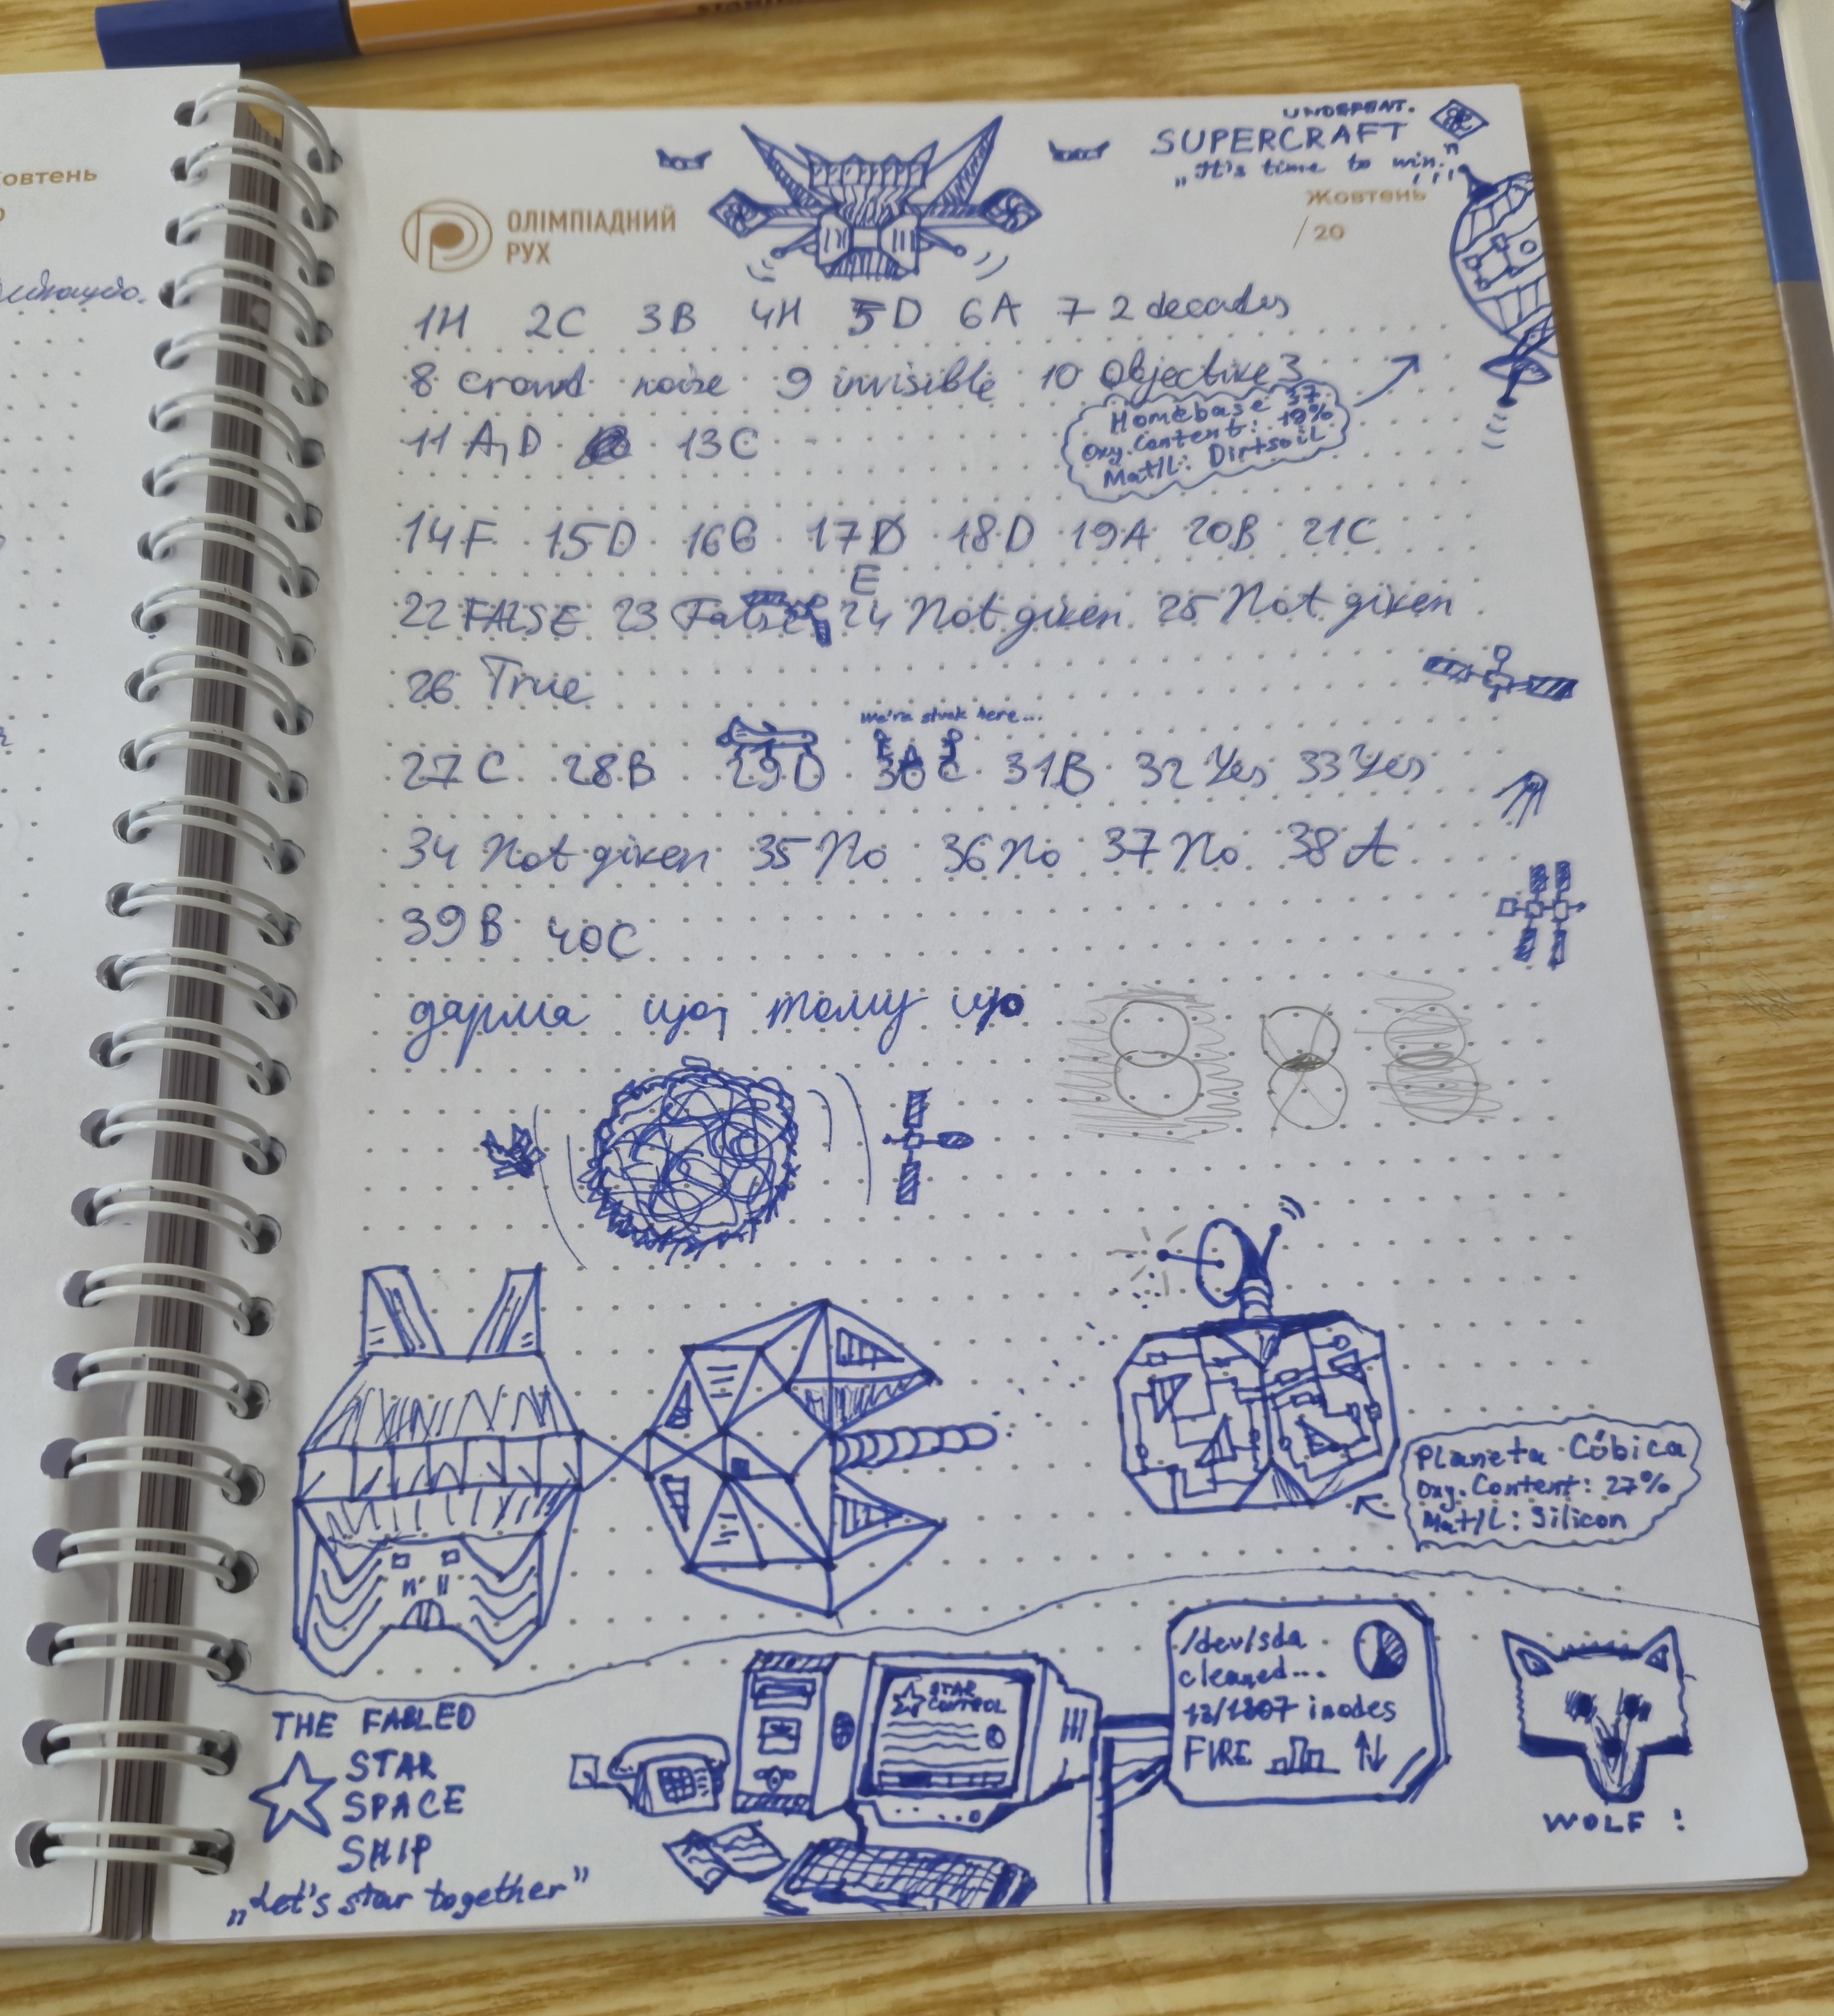 STAEDTLER
UNDEFEAT.
SUPERCRAFT
„It's time to win."
Жовтень
/20
ОЛІМПІАДНИЙ
РУХ
1H 2C 3B 4H 5D 6A 7 2 decades
8 crowd noise 9 invisible 10 Objective 3
Homebase 37
Oxy. Content: 19%
Mat/L: Dirtsoil
11 A, D 13C
14F 15D 16G 17 E 18D 19A 20B 21C
22 FALSE 23 False 24 Not given 25 Not given
26 True
We're stuck here...
27C 28B 29D 30C 31B 32 Yes 33 Yes
34 Not given 35 No 36 No 37 No 38 A
39B 40C
дарма що, тому що
Planeta Cóbica
Oxy. Content: 27%
Mat/L: Silicon
THE FABLED
STAR
SPACE
SHIP
„Let's star together"
STAR
CONTROL
/dev/sda
cleaned...
13/1807 inodes
FIRE
WOLF!